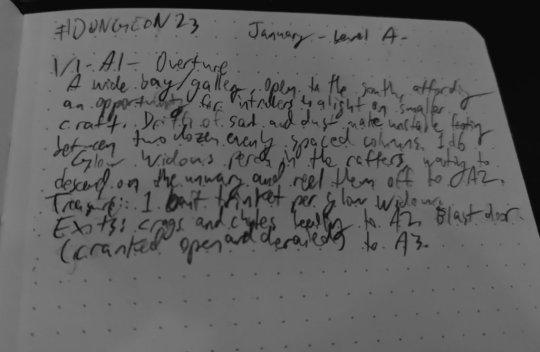 #DUNGEON23 January - Level A -
1/1 - A1 - Overture
A wide bay/gallery, open to the south, affording
an opportunity for intruders to alight on smaller
craft. Drifts of sand and dust make unstable footing
between two dozen evenly spaced columns. 1d6
Glow Widows perch in the rafters, waiting to
descend on the unwary and reel them off to A2.
Treasure: 1 bait trinket per Glow Widow.
Exits: crags and chutes leading to A2. Blast door
(cranked open and derailed) to A3.